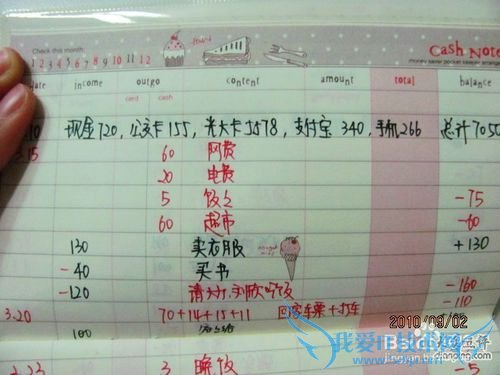 Check this month: Cash Note
1 2 3 4 5 6 7 8 9 10 11 12
income outgo content amount total balance
card cash
现金720, 公交卡155, 光大卡5578, 支付宝 340, 手机266 总计7055
60 网费
20 电费
5 饭 -75
60 超市 -60
130 卖衣服 +130
-40 买书
-120 请 吃饭 -160
-110
3.20 70+14+15+11 回 车票+打车
100
3 晚饭 -5
2010/09/02